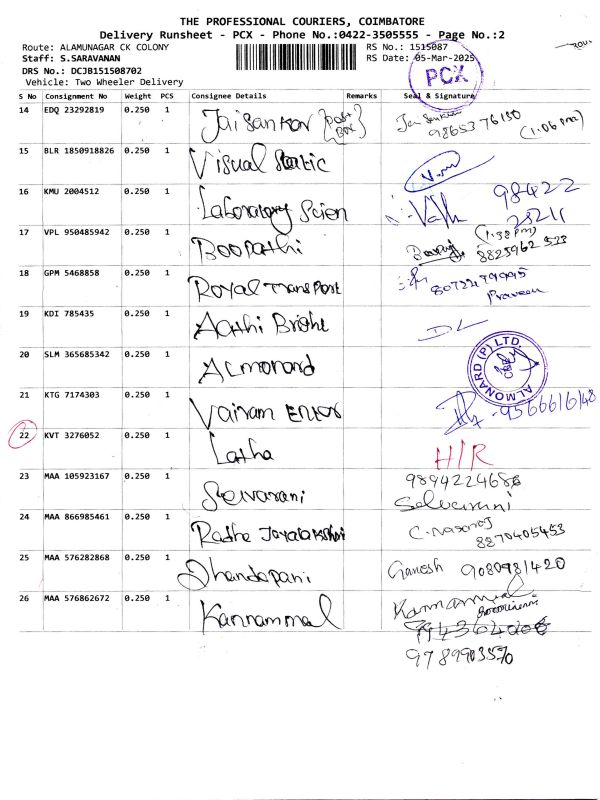 THE PROFESSIONAL COURIERS, COIMBATORE
Delivery Runsheet - PCX - Phone No.:0422-3505555 - Page No.:2
Route: ALAMUNAGAR CK COLONY
RS No.: 1515087
Staff: S.SARAVANAN
RS Date: 05-Mar-2025
PCX
DRS No.: DCJB151508702
Vehicle: Two Wheeler Delivery
S No Consignment No Weight PCS Consignee Details Remarks Seal & Signature
14 EDQ 23292819 0.250 1 Jaisankar (Post Box) 9865376130 (1:06 pm)
15 BLR 1850918826 0.250 1 Visual Static
16 KMU 2004512 0.250 1 Laboratory Scien 98422 25211
17 VPL 950485942 0.250 1 Boopathi (1:38 pm) 8825962523
18 GPM 5468858 0.250 1 Royal Transport 8072479995 Praveen
19 KDI 785435 0.250 1 Aathi Bright DL
20 SLM 365685342 0.250 1 Almonard ALMONARD (P) LTD. CBE
21 KTG 7174303 0.250 1 Vairam Enter 9566616148
22 KVT 3276052 0.250 1 Latha H/R
23 MAA 105923167 0.250 1 Selvarani 9894224686 Selvarani
24 MAA 866985461 0.250 1 Radha Jayalakshmi 8870405453
25 MAA 576282868 0.250 1 Dhandapani Ganesh 9080981420
26 MAA 576862672 0.250 1 Kannammal Kannammal
9789903570